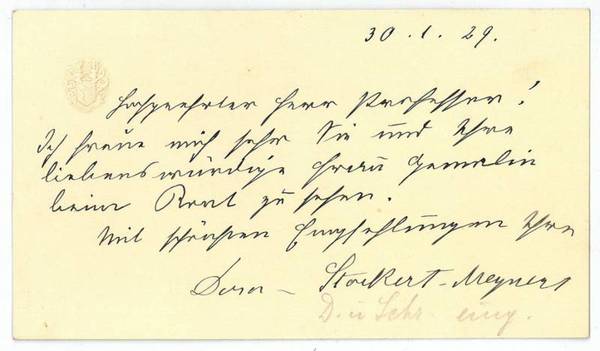 30.1.29.
Hochgeehrter Herr Professor!
Ich freue mich sehr Sie und Ihre
liebenswürdige Frau Gemalin
beim Rout zu sehen.
Mit schönsten Empfehlungen Ihre
Dora Stockert-Meynert
D. u Schr.